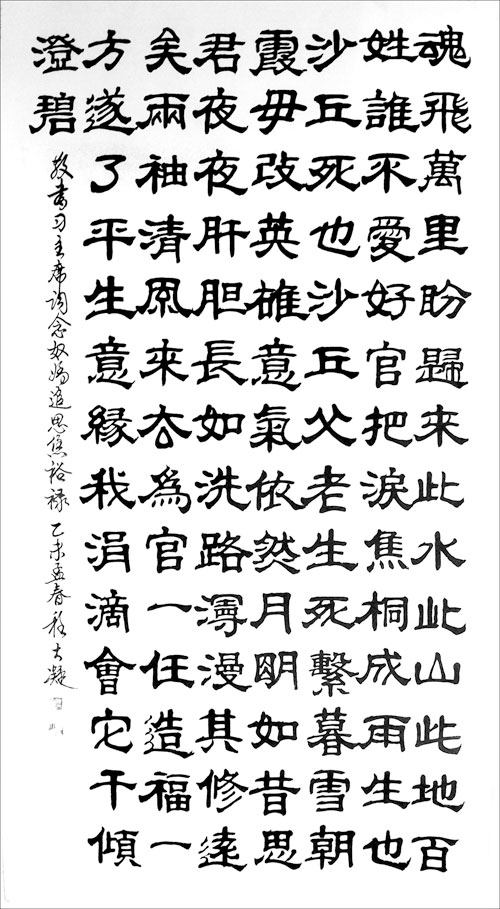 魂飛萬里盼歸來此水此山此地百
姓誰不愛好官把淚焦桐成雨生也
沙丘死也沙丘父老生死繫暮雪朝
霞毋改英雄意氣依然月明如昔思
君夜夜肝胆長如洗路漫漫其修遠
矣兩袖清風來去為官一任造福一
方遂了平生意緣我涓滴會它千傾
澄碧
敬書习主席詞念奴嬌追思焦裕禄 乙未孟春 大凝